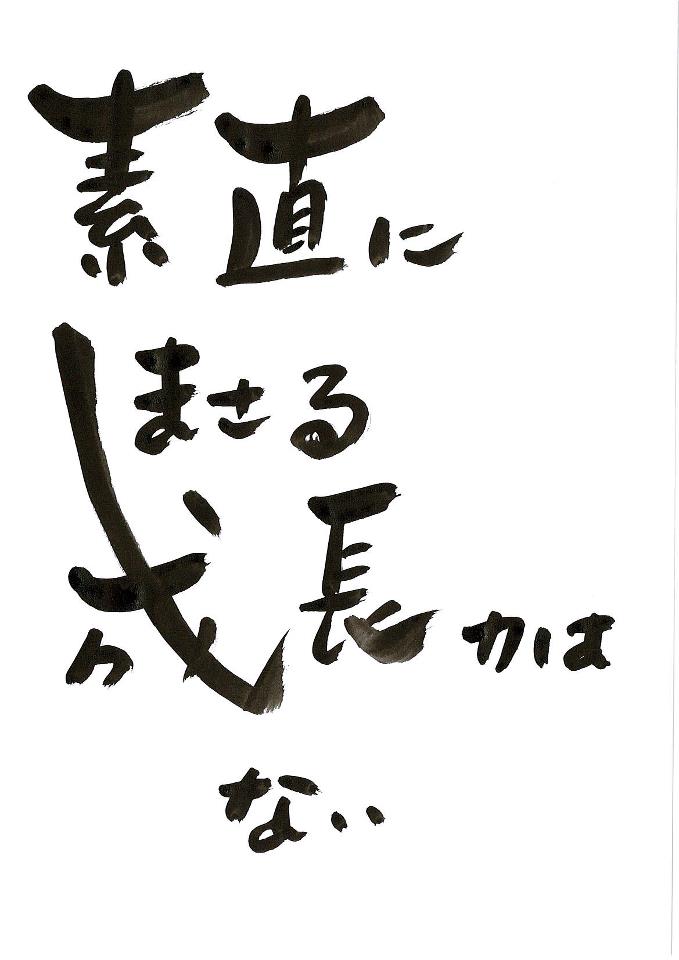 素直に
まさる
成長力は
ない